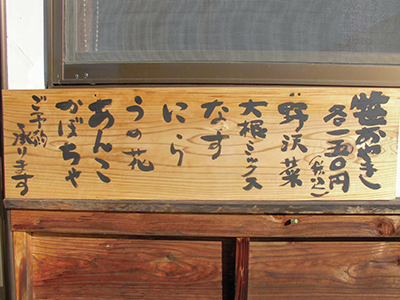 笹おやき
各一五〇円
(税込)
野沢菜
大根ミックス
なす
にら
うの花
あんこ
かぼちゃ
ご予約
承ります